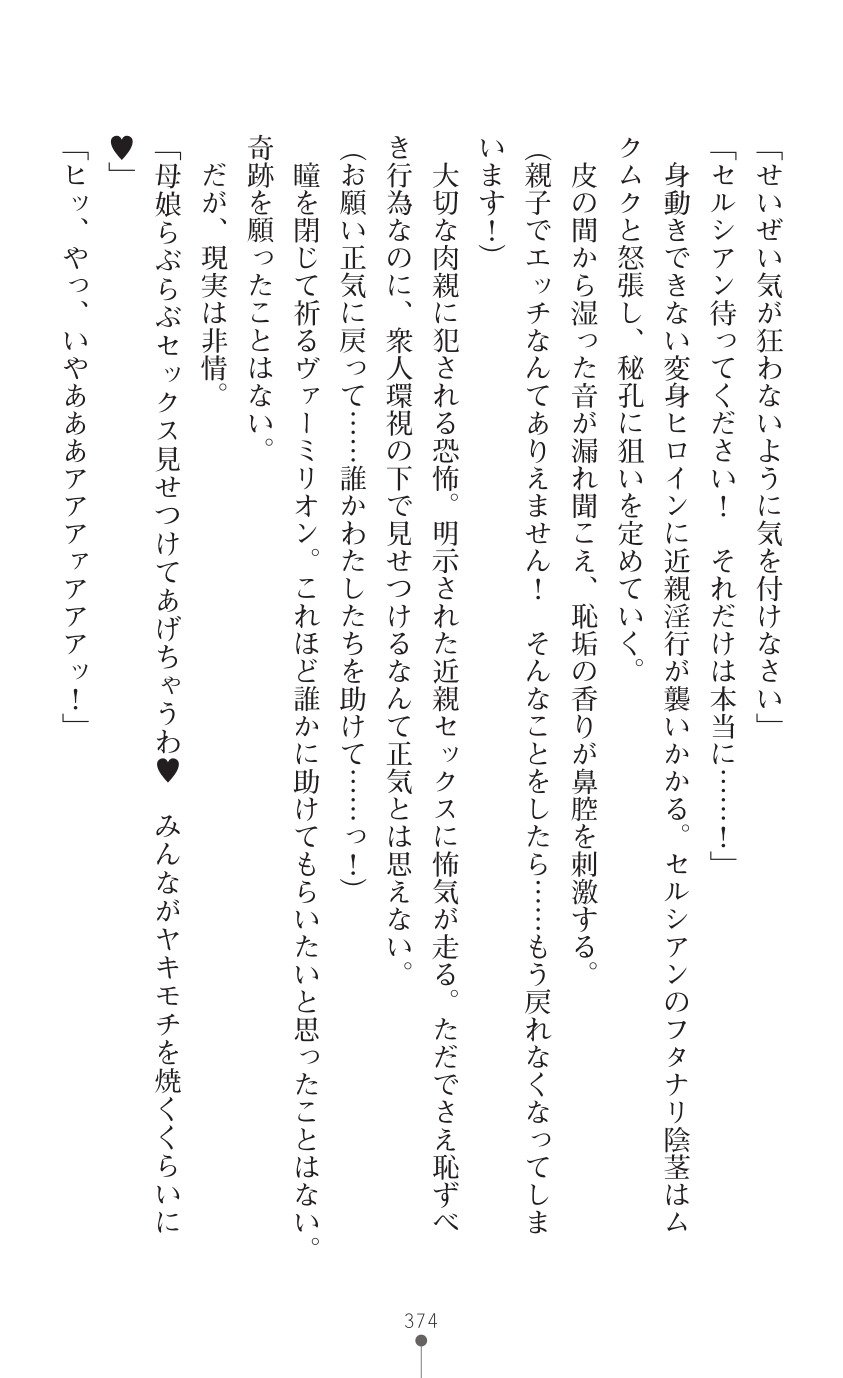 「せいぜい気が狂わないように気を付けなさい」
「セルシアン待ってください！　それだけは本当に……！」
　身動きできない変身ヒロインに近親淫行が襲いかかる。セルシアンのフタナリ陰茎はム
クムクと怒張し、秘孔に狙いを定めていく。
　皮の間から湿った音が漏れ聞こえ、恥垢の香りが鼻腔を刺激する。
（親子でエッチなんてありえません！　そんなことをしたら……もう戻れなくなってしま
います！）
　大切な肉親に犯される恐怖。明示された近親セックスに怖気が走る。ただでさえ恥ずべ
き行為なのに、衆人環視の下で見せつけるなんて正気とは思えない。
（お願い正気に戻って……誰かわたしたちを助けて……っ！）
　瞳を閉じて祈るヴァーミリオン。これほど誰かに助けてもらいたいと思ったことはない。
奇跡を願ったことはない。
　だが、現実は非情。
「母娘らぶらぶセックス見せつけてあげちゃうわ♥　みんながヤキモチを焼くくらいに
♥」
「ヒッ、やっ、いやあああアアアァアアアッ！」
374